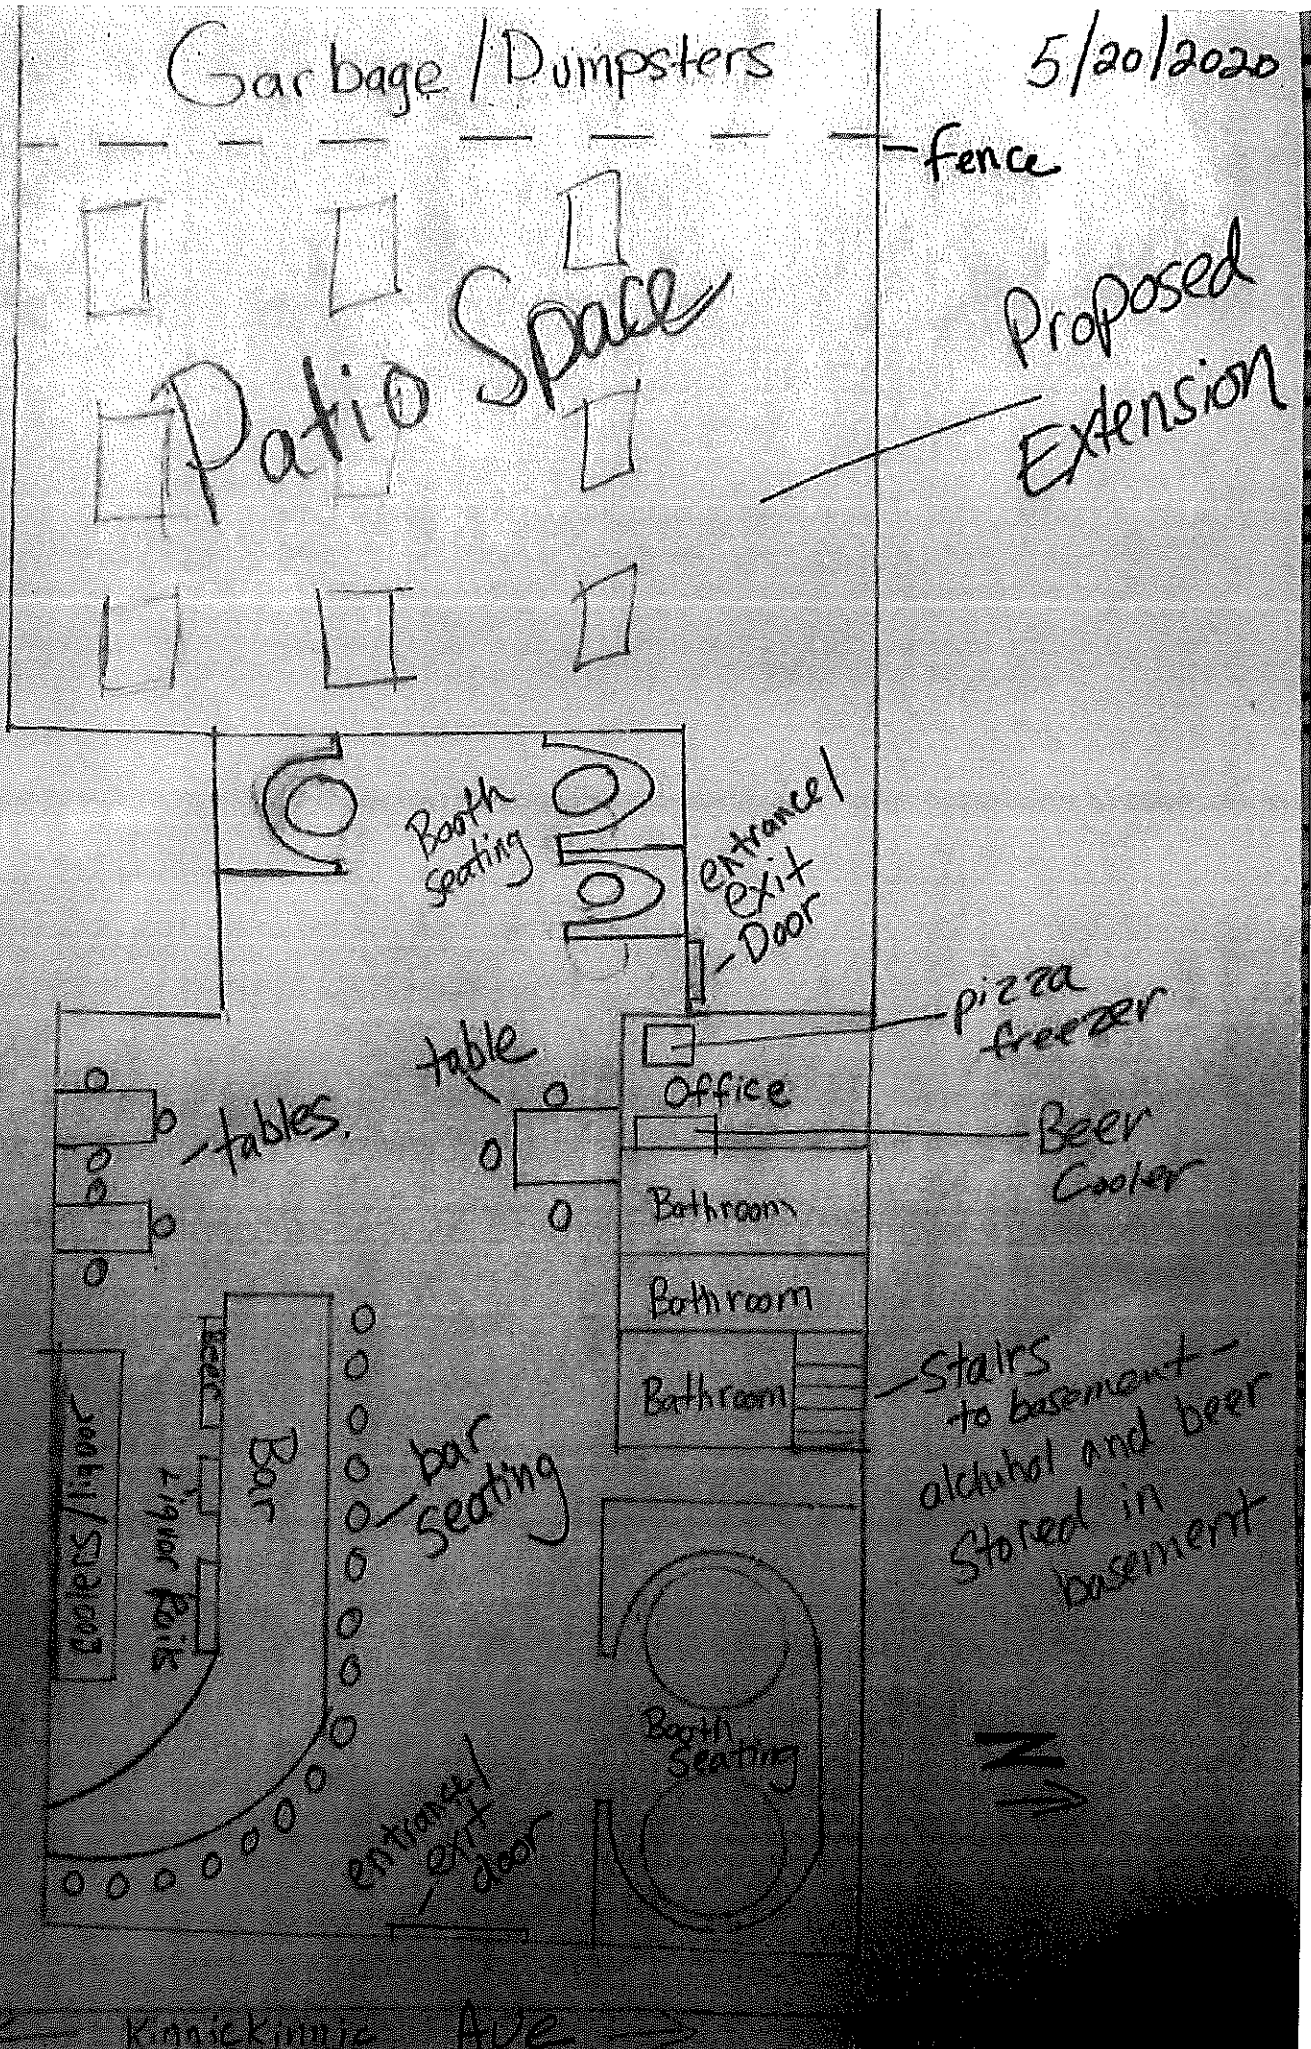 Garbage/Dumpsters
5/20/2020
-fence
Patio Space
Proposed
Extension
Booth
seating
entrance/
exit
Door
pizza
freezer
table
Office
tables.
Beer
Cooler
Bathroom
Bathroom
Bathroom
Stairs
to basement -
alchuhol and beer
Stored in
basement
Beer
Bar
bar
seating
coolers/liquor
Liquor Rails
Booth
Seating
N
entrance/
exit
door
Kinnickinnic Ave